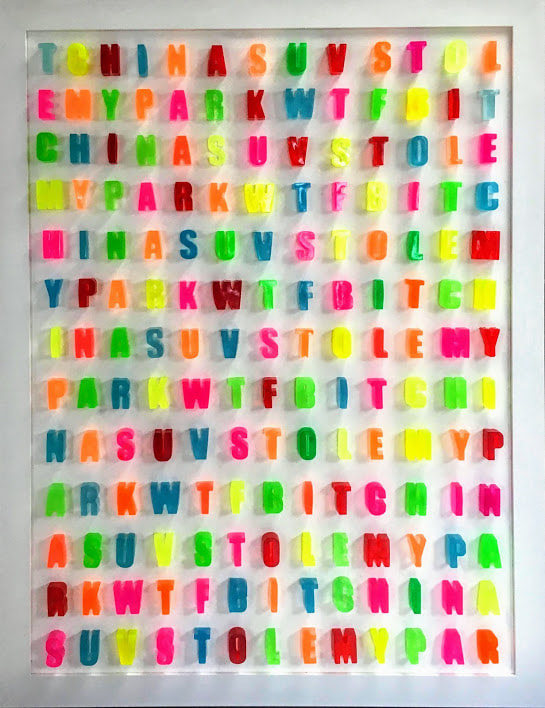 TCHINASUVSTOL
EMYPARKWTFBIT
CHINASUVSTOLE
MYPARKWTFBITC
HINASUVSTOLEM
YPARKWTFBITCH
INASUVSTOLEMY
PARKWTFBITCHI
NASUVSTOLEMYP
ARKWTFBITCHIN
ASUVSTOLEMYPA
RKWTFBITCHINA
SUVSTOLEMYPAR